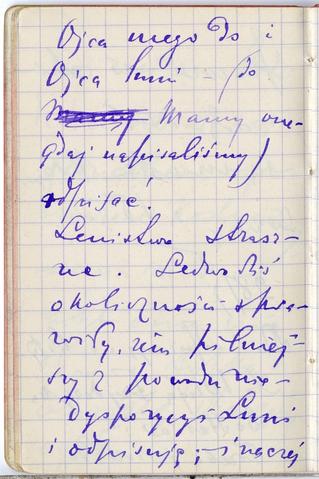 Ojca mego do i
Ojca Luni – (do
Mamy Mamy one-
gdaj napisaliśmy)
odpisać!
Lenistwo strasz-
ne. Ledwo dziś
okoliczności spra-
wiły, żem pilniej-
szy z powodu nie-
dyspozycyi Luni
i odpisuję, – inaczej